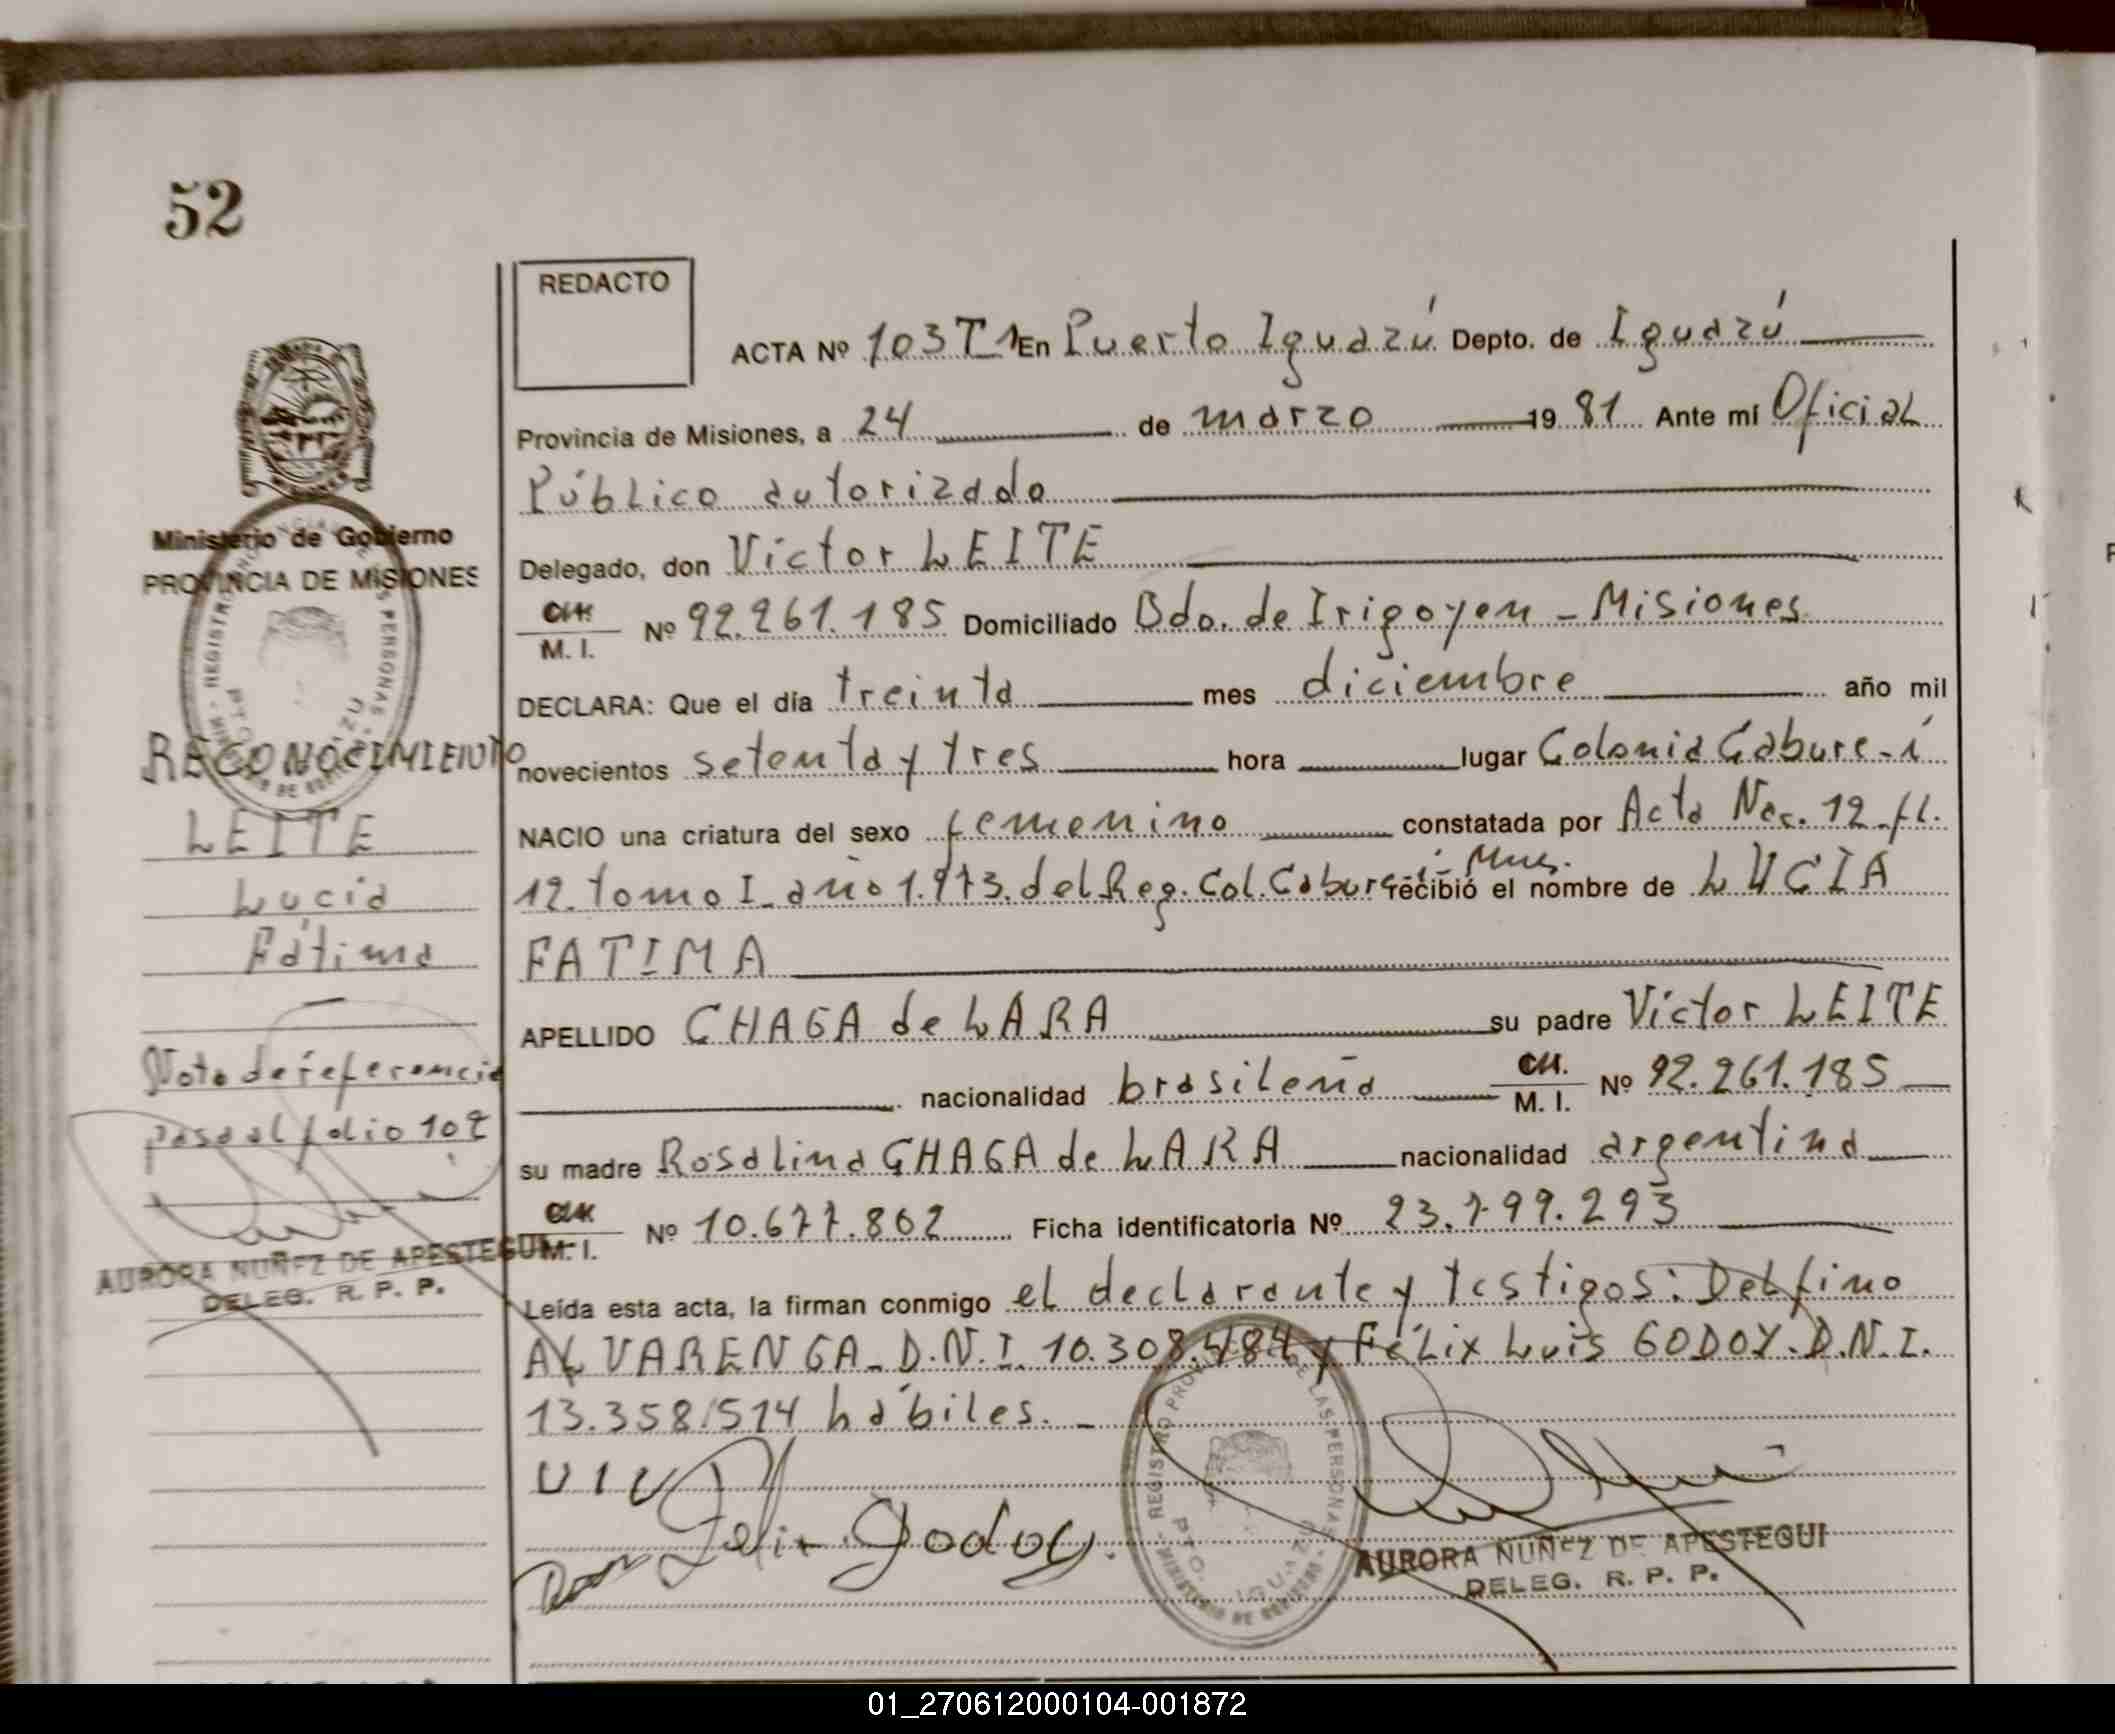 52
REDACTO
ACTA Nº 103 T 1 En Puerto Iguazú Depto. de Iguazú
Provincia de Misiones, a 24 de marzo 1981 Ante mí Oficial
Público autorizado
Delegado, don Víctor LEITE
M. I. Nº 92.261.185 Domiciliado Bdo. de Irigoyen - Misiones
DECLARA: Que el día treinta mes diciembre año mil
novecientos setenta y tres hora lugar Colonia Cabure-í
NACIO una criatura del sexo femenino constatada por Acta Nac. 12 fl.
12. tomo I_ año 1.973. del Reg. Col. Cabure-í- Mnes. recibió el nombre de LUCIA
FATIMA
APELLIDO CHAGA de LARA su padre Víctor LEITE
nacionalidad brasileña M. I. Nº 92.261.185
su madre Rosalina CHAGA de LARA nacionalidad argentina
M. I. Nº 10.677.802 Ficha identificatoria Nº 23.799.293
Leída esta acta, la firman conmigo el declarante y testigos: Delfino
ALVARENGA_ D.N.I. 10.308.484 y Félix Luis GODOY. D.N.I.
13.358.514 hábiles. _
Felix Godoy.
REGISTRO PROV DE LAS PERSONAS
PTO. IGUAZU
AURORA NUÑEZ DE APESTEGUI
DELEG. R. P. P.
Ministerio de Gobierno
PROVINCIA DE MISIONES
RECONOCIMIENTO
LEITE
Lucia
Fátima
Nota de referencia
pasa al folio 102
AURORA NUÑEZ DE APESTEGUI
DELEG. R. P. P.
01_270612000104-001872